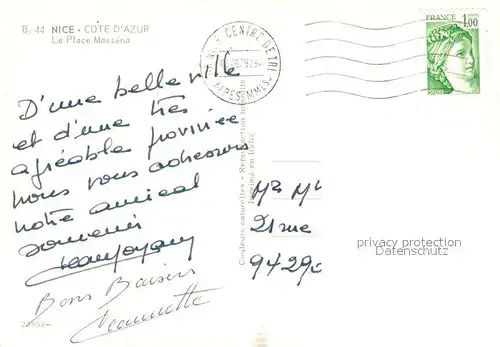 B. 44 NICE - COTE D'AZUR
La Place Masséna
D'une belle ville
et d'une très
agréable province
nous vous adressons
notre amical
souvenir
Bons Baisers
Jeannette
CENTRE DE TRI
ALPES-MMES
FRANCE
1,00
Couleurs naturelles - Reproduction
Imprimé en Italie
Mr Me
21 rue
9429
privacy protection
Datenschutz